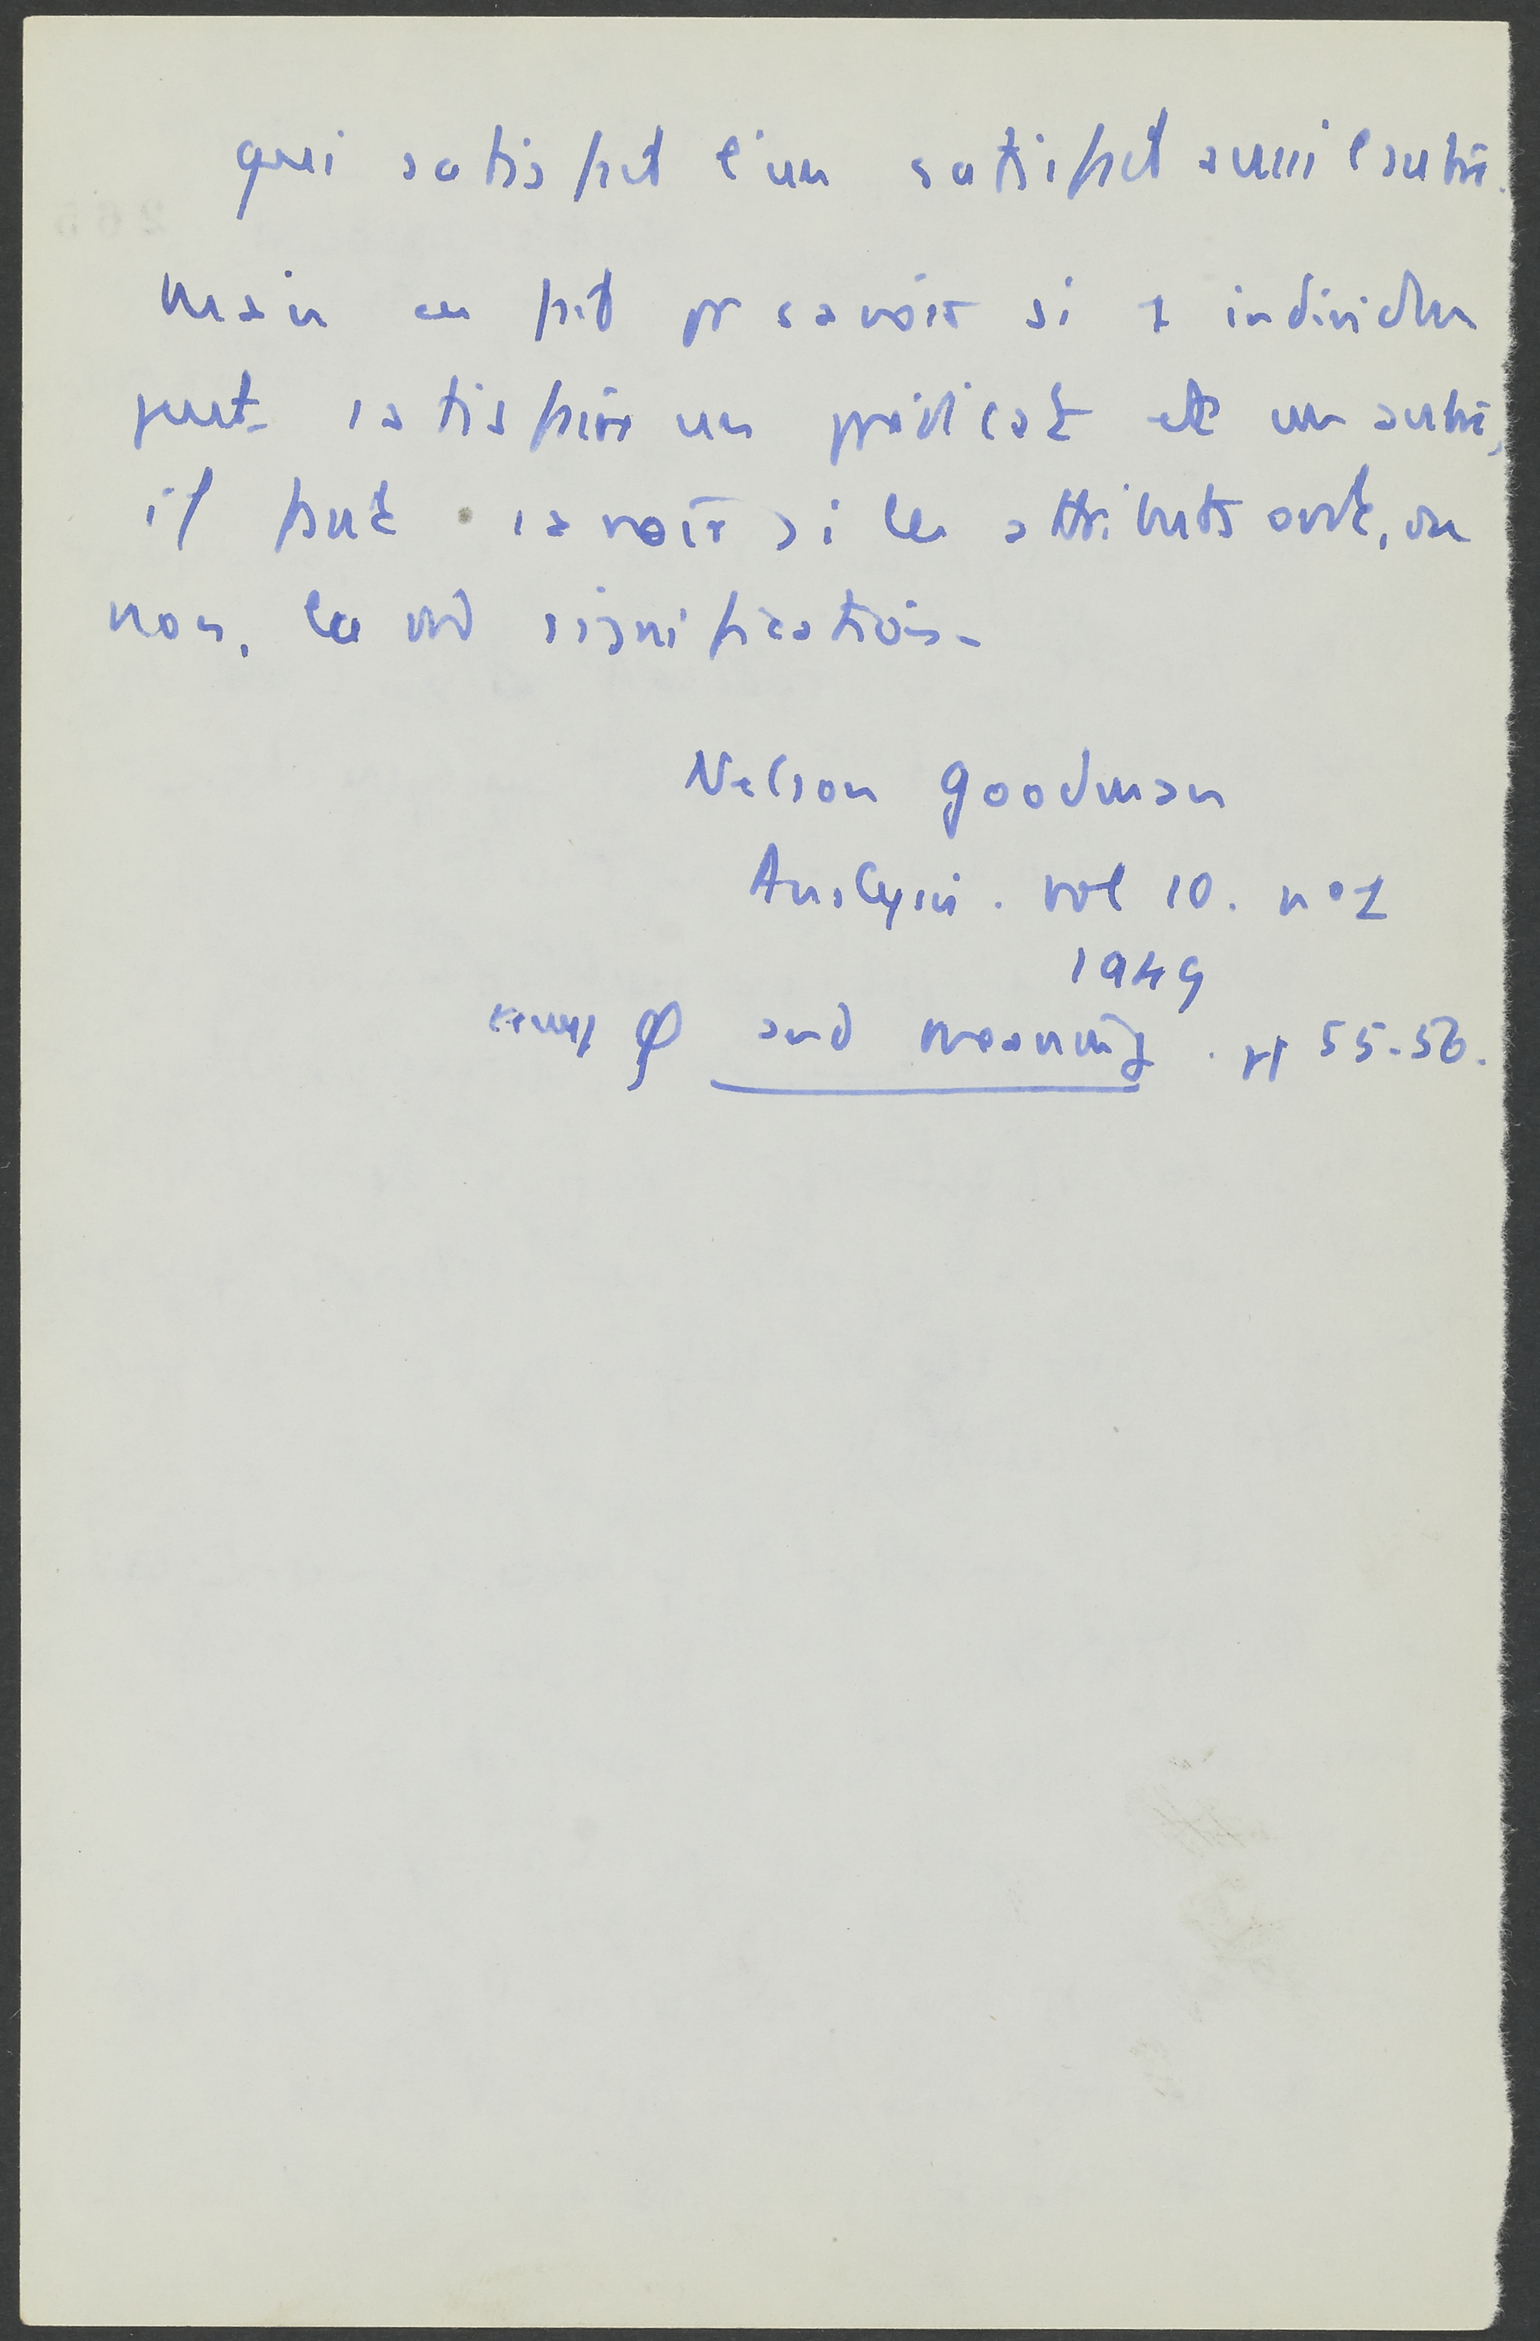 qui satisfait l'un satisfait aussi l'autre.
Mais en fait pr savoir si 1 individu
peut satisfaire un prédicat et un autre,
il faut savoir si les attributs ont, ou
non, la signification.
Nelson Goodman
Analysis. vol 10. n° 1
1949
φ and meaning. pp 55-56.